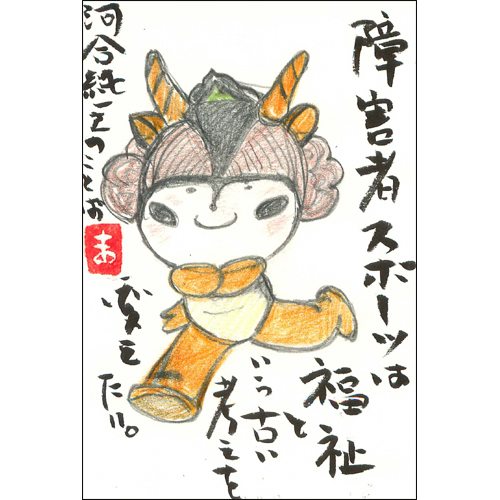 障害者スポーツは
福祉
と
いう古い
考えを
変え
たい。
河合純一のことば